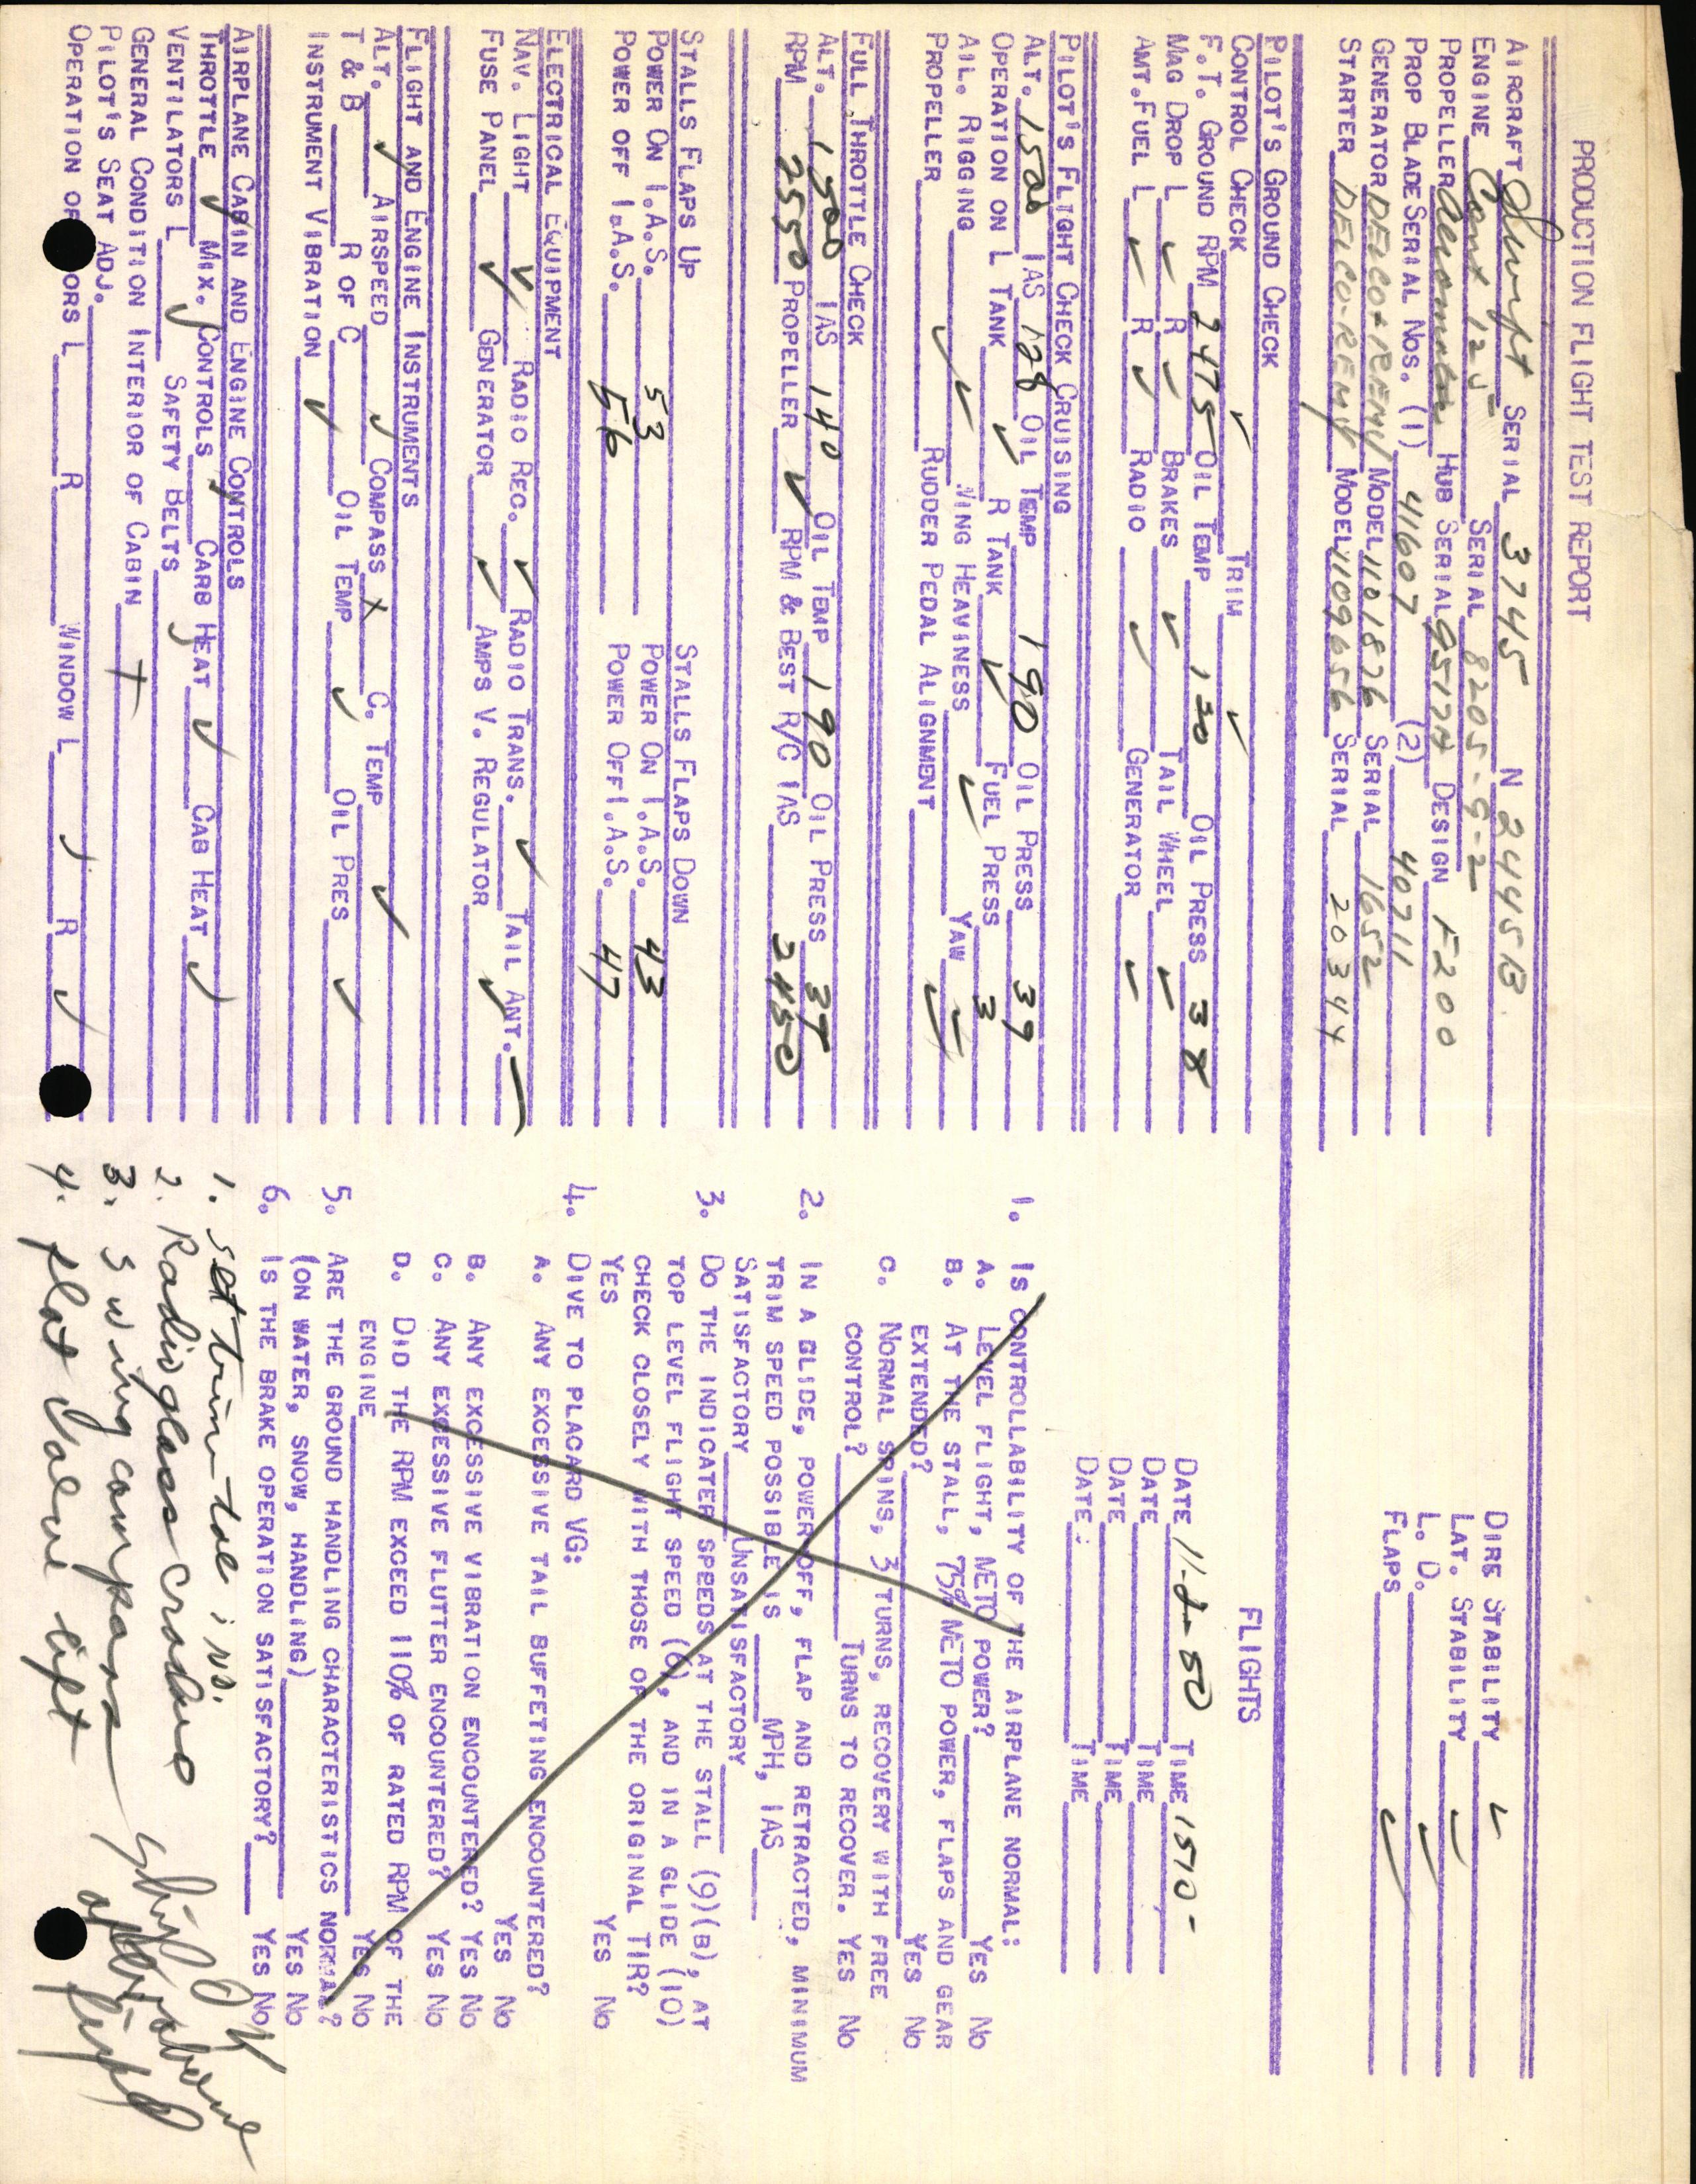 PRODUCTION FLIGHT TEST REPORT
AIRCRAFT Swift SERIAL 3745 N 2445B
ENGINE Cont 125 SERIAL 8205-9-2
PROPELLER HUB SERIAL DESIGN F200
PROP BLADE SERIAL NOS. (1) 41607 (2) 40711
GENERATOR DELCO-REMY MODEL 1101876 SERIAL 1652
STARTER DELCO-REMY MODEL 1109656 SERIAL 20344
DIRE STABILITY ✓
LAT. STABILITY ✓
L. D. ✓
FLAPS ✓
PILOT'S GROUND CHECK
CONTROL CHECK ✓ TRIM ✓
F.T. GROUND RPM 2475 OIL TEMP 130 OIL PRESS 38
MAG DROP L ✓ R ✓ BRAKES ✓ TAIL WHEEL ✓
AMT. FUEL L ✓ R ✓ RADIO ✓ GENERATOR ✓
PILOT'S FLIGHT CHECK CRUISING
ALT. 1500 IAS 128 OIL TEMP 190 OIL PRESS 39
OPERATION ON L TANK ✓ R TANK ✓ FUEL PRESS 3
AIL. RIGGING ✓ WING HEAVINESS ✓ YAW ✓
PROPELLER ✓ RUDDER PEDAL ALIGNMENT ✓
FULL THROTTLE CHECK
ALT. 1500 IAS 140 OIL TEMP 190 OIL PRESS 38
RPM 2550 PROPELLER ✓ RPM & BEST R/C IAS 2450
STALLS FLAPS UP STALLS FLAPS DOWN
POWER ON I.A.S. 53 POWER ON I.A.S. 43
POWER OFF I.A.S. 56 POWER OFF I.A.S. 47
ELECTRICAL EQUIPMENT
NAV. LIGHT ✓ RADIO REC. ✓ RADIO TRANS. ✓ TAIL ANT. —
FUSE PANEL ✓ GENERATOR ✓ AMPS V. REGULATOR ✓
FLIGHT AND ENGINE INSTRUMENTS
ALT. ✓ AIRSPEED ✓ COMPASS X C. TEMP ✓
T & B R OF C OIL TEMP ✓ OIL PRES ✓
INSTRUMENT VIBRATION ✓
AIRPLANE CABIN AND ENGINE CONTROLS
THROTTLE ✓ MIX. ✓ CONTROLS ✓ CARB HEAT ✓ CAB HEAT ✓
VENTILATORS L ✓ SAFETY BELTS ✓
GENERAL CONDITION INTERIOR OF CABIN +
PILOT'S SEAT ADJ.
OPERATION OF DOORS L R WINDOW L ✓ R ✓
FLIGHTS
DATE 11-8-50 TIME 1510-
DATE TIME
DATE TIME
DATE: TIME
1. IS CONTROLLABILITY OF THE AIRPLANE NORMAL:
A. LEVEL FLIGHT, METO POWER? YES NO
B. AT THE STALL, 75% METO POWER, FLAPS AND GEAR
EXTENDED? YES NO
C. NORMAL SPINS, 3 TURNS, RECOVERY WITH FREE
CONTROL? TURNS TO RECOVER. YES NO
2. IN A GLIDE, POWER OFF, FLAP AND RETRACTED, MINIMUM
TRIM SPEED POSSIBLE IS MPH, IAS
SATISFACTORY UNSATISFACTORY
3. DO THE INDICATER SPEEDS AT THE STALL (9)(B), AT
TOP LEVEL FLIGHT SPEED (6), AND IN A GLIDE (10)
CHECK CLOSELY WITH THOSE OF THE ORIGINAL TIR?
YES YES NO
4. DIVE TO PLACARD VG:
A. ANY EXCESSIVE TAIL BUFFETING ENCOUNTERED?
YES NO
B. ANY EXCESSIVE VIBRATION ENCOUNTERED? YES NO
C. ANY EXCESSIVE FLUTTER ENCOUNTERED? YES NO
D. DID THE RPM EXCEED 110% OF RATED RPM OF THE
ENGINE YES NO
5. ARE THE GROUND HANDLING CHARACTERISTICS NORMAL?
(ON WATER, SNOW, HANDLING) YES NO
6. IS THE BRAKE OPERATION SATISFACTORY? YES NO
1. set trim toe in.
2. Radio glass cracked
3. Swing compass
4. flat valve left
Ship OK